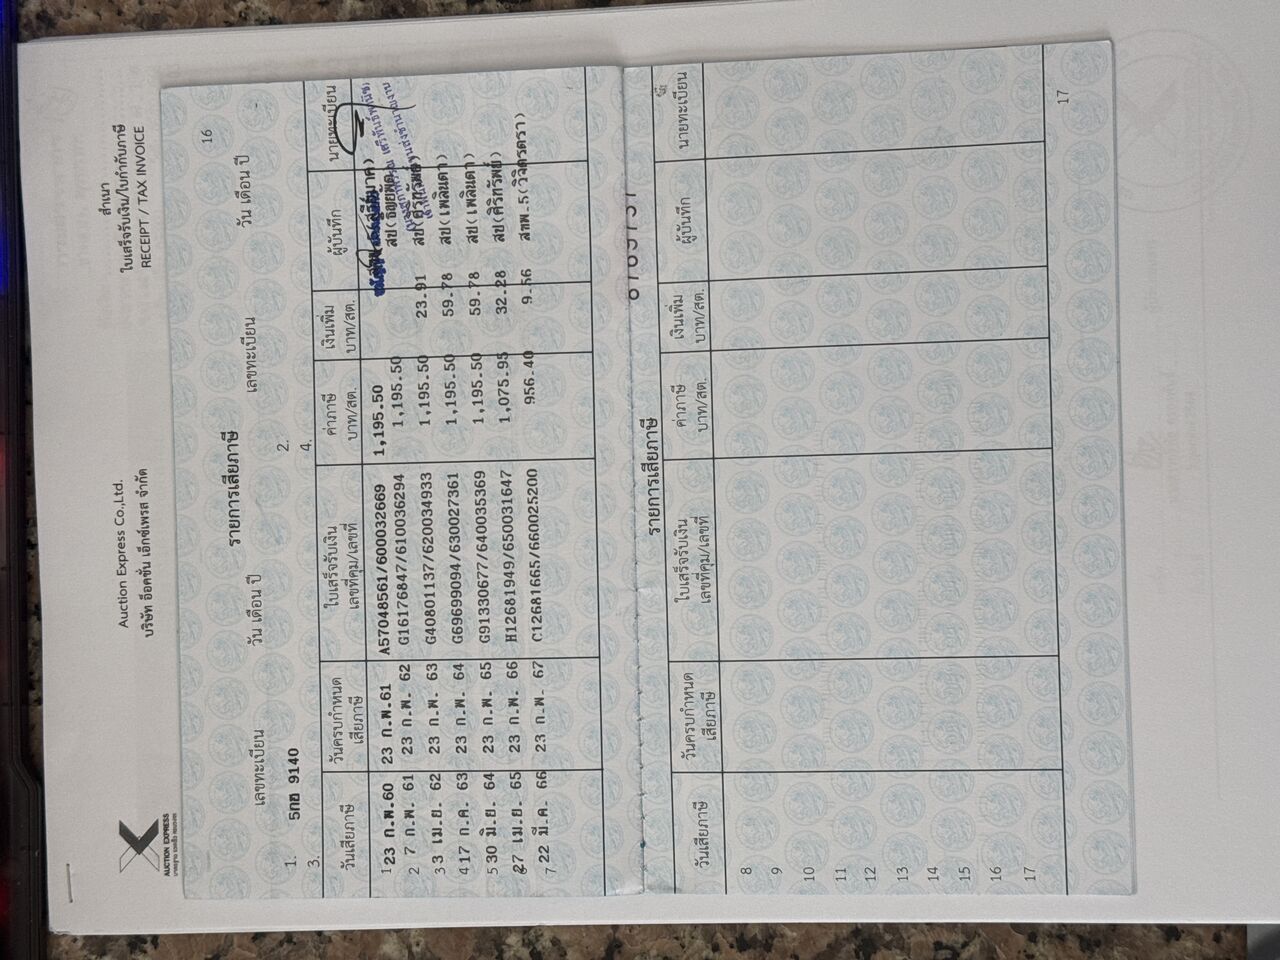 สำเนา
ใบเสร็จรับเงิน/ใบกำกับภาษี
RECEIPT / TAX INVOICE
Auction Express Co.,Ltd.
บริษัท อ๊อคชั่น เอ็กซ์เพรส จำกัด
AUCTION EXPRESS
16
รายการเสียภาษี
เลขทะเบียน วัน เดือน ปี เลขทะเบียน วัน เดือน ปี
1. 5กอ 9140 2.
3. 4.
วันเสียภาษี วันครบกำหนดเสียภาษี ใบเสร็จรับเงิน เลขที่คุม/เลขที่ ค่าภาษี บาท/สต. เงินเพิ่ม บาท/สต. ผู้บันทึก นายทะเบียน
1 23 ก.พ.60 23 ก.พ.61 A57048561/600032669 1,195.50
2 7 ก.พ. 61 23 ก.พ. 62 G16176847/610036294 1,195.50 สป(ธัญยพด)
3 3 เม.ย. 62 23 ก.พ. 63 G40801137/620034933 1,195.50 23.91 สป(ศิริทรัพย์)
4 17 ก.ค. 63 23 ก.พ. 64 G69699094/630027361 1,195.50 59.78 สป(เพลินตา)
5 30 มิ.ย. 64 23 ก.พ. 65 G91330677/640035369 1,195.50 59.78 สป(เพลินตา)
6 27 เม.ย. 65 23 ก.พ. 66 H12681949/650031647 1,075.95 32.28 สป(ศิริทรัพย์)
7 22 มี.ค. 66 23 ก.พ. 67 C12681665/660025200 956.40 9.56 สทพ.5(วิจิตรตรา)
รายการเสียภาษี
วันเสียภาษี วันครบกำหนดเสียภาษี ใบเสร็จรับเงิน เลขที่คุม/เลขที่ ค่าภาษี บาท/สต. เงินเพิ่ม บาท/สต. ผู้บันทึก นายทะเบียน
8
9
10
11
12
13
14
15
16
17
17